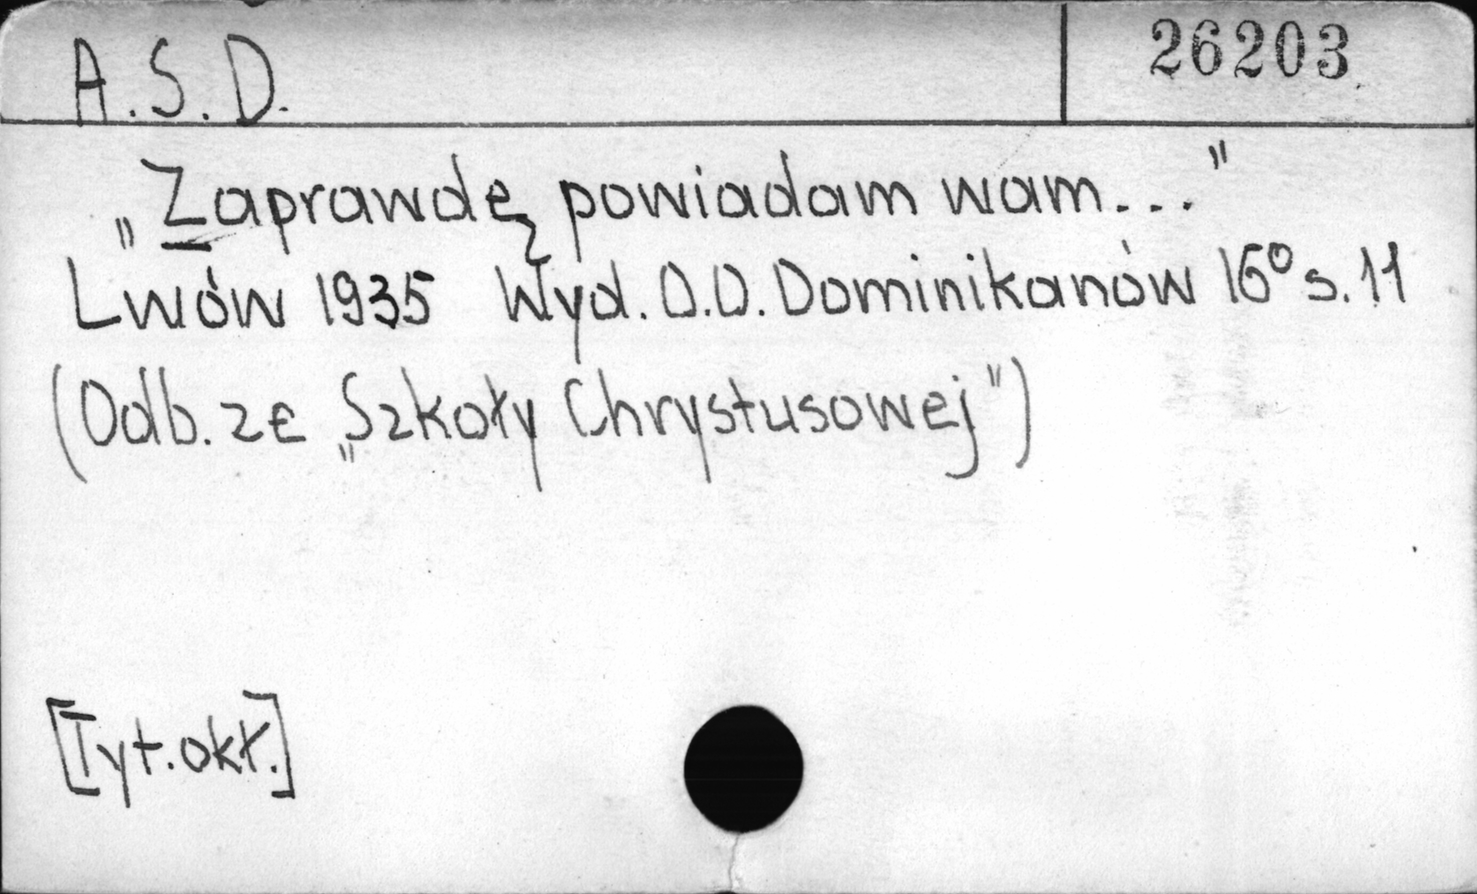 A.S.D.
26203
„Zaprawdę powiadam wam..."
Lwów 1935 Wyd. O.O. Dominikanów 16° s. 11
(Odb. ze „Szkoły Chrystusowej")
[Tyt. okł.]